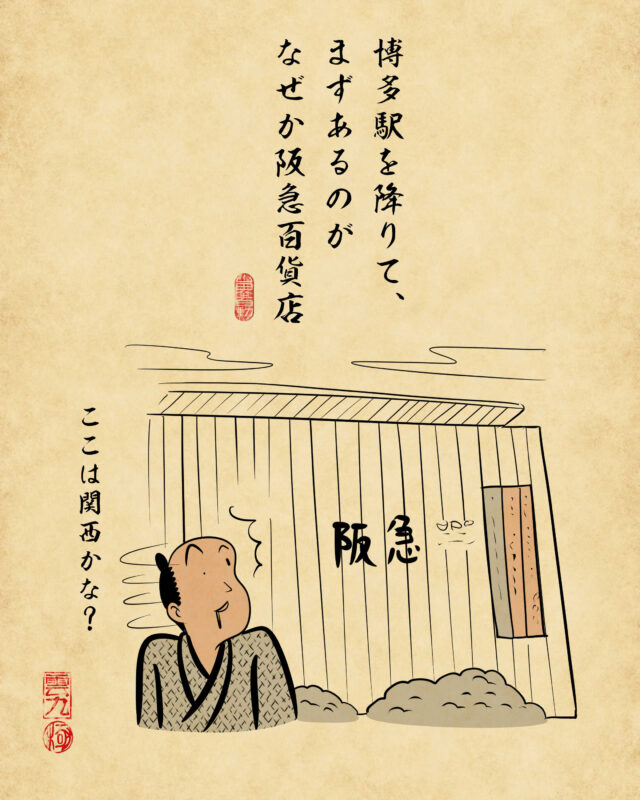 博多駅を降りて、
まずあるのが
なぜか阪急百貨店
阪急
ここは関西かな？